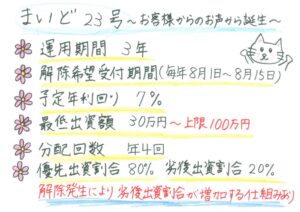 まいど23号 ～お客様からのお声から誕生～
運用期間 3年
解除希望受付期間(毎年8月1日～8月15日)
予定年利回り 7%
最低出資額 30万円～上限100万円
分配回数 年4回
優先出資割合80% 劣後出資割合20%
解除発生により劣後出資割合が増加する仕組みあり